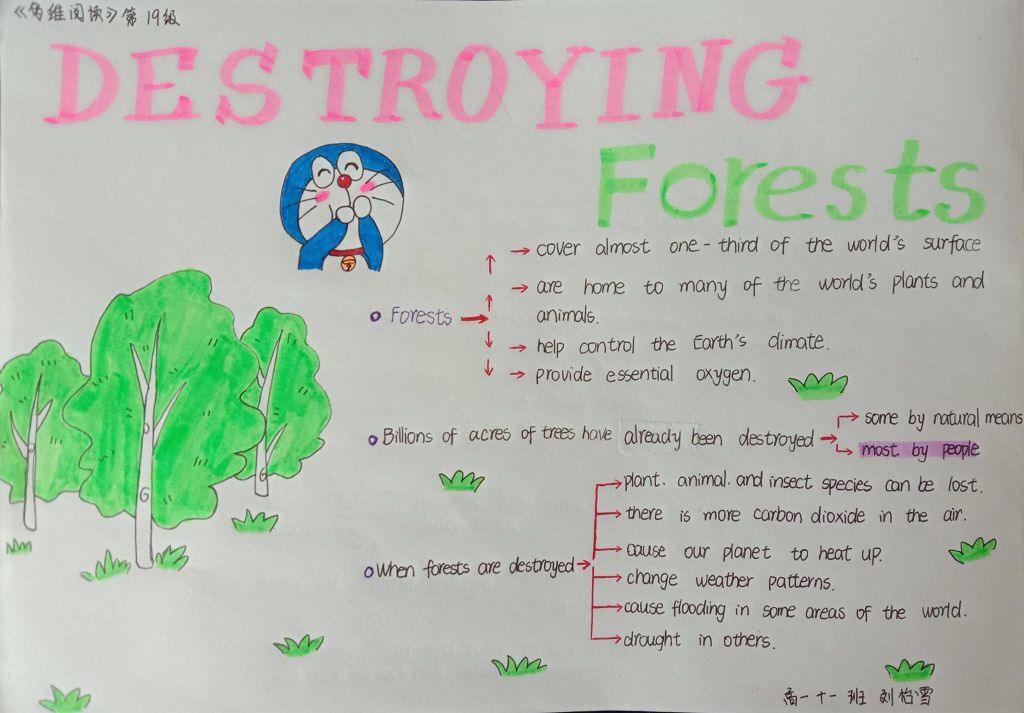 《多维阅读》第19级
DESTROYING
Forests
Forests
cover almost one-third of the world's surface
are home to many of the world's plants and
animals.
help control the Earth's climate.
provide essential oxygen.
Billions of acres of trees have already been destroyed
some by natural means
most by people
When forests are destroyed
plant. animal. and insect species can be lost.
there is more carbon dioxide in the air.
cause our planet to heat up.
change weather patterns.
cause flooding in some areas of the world.
drought in others.
高一十一班 刘怡雪